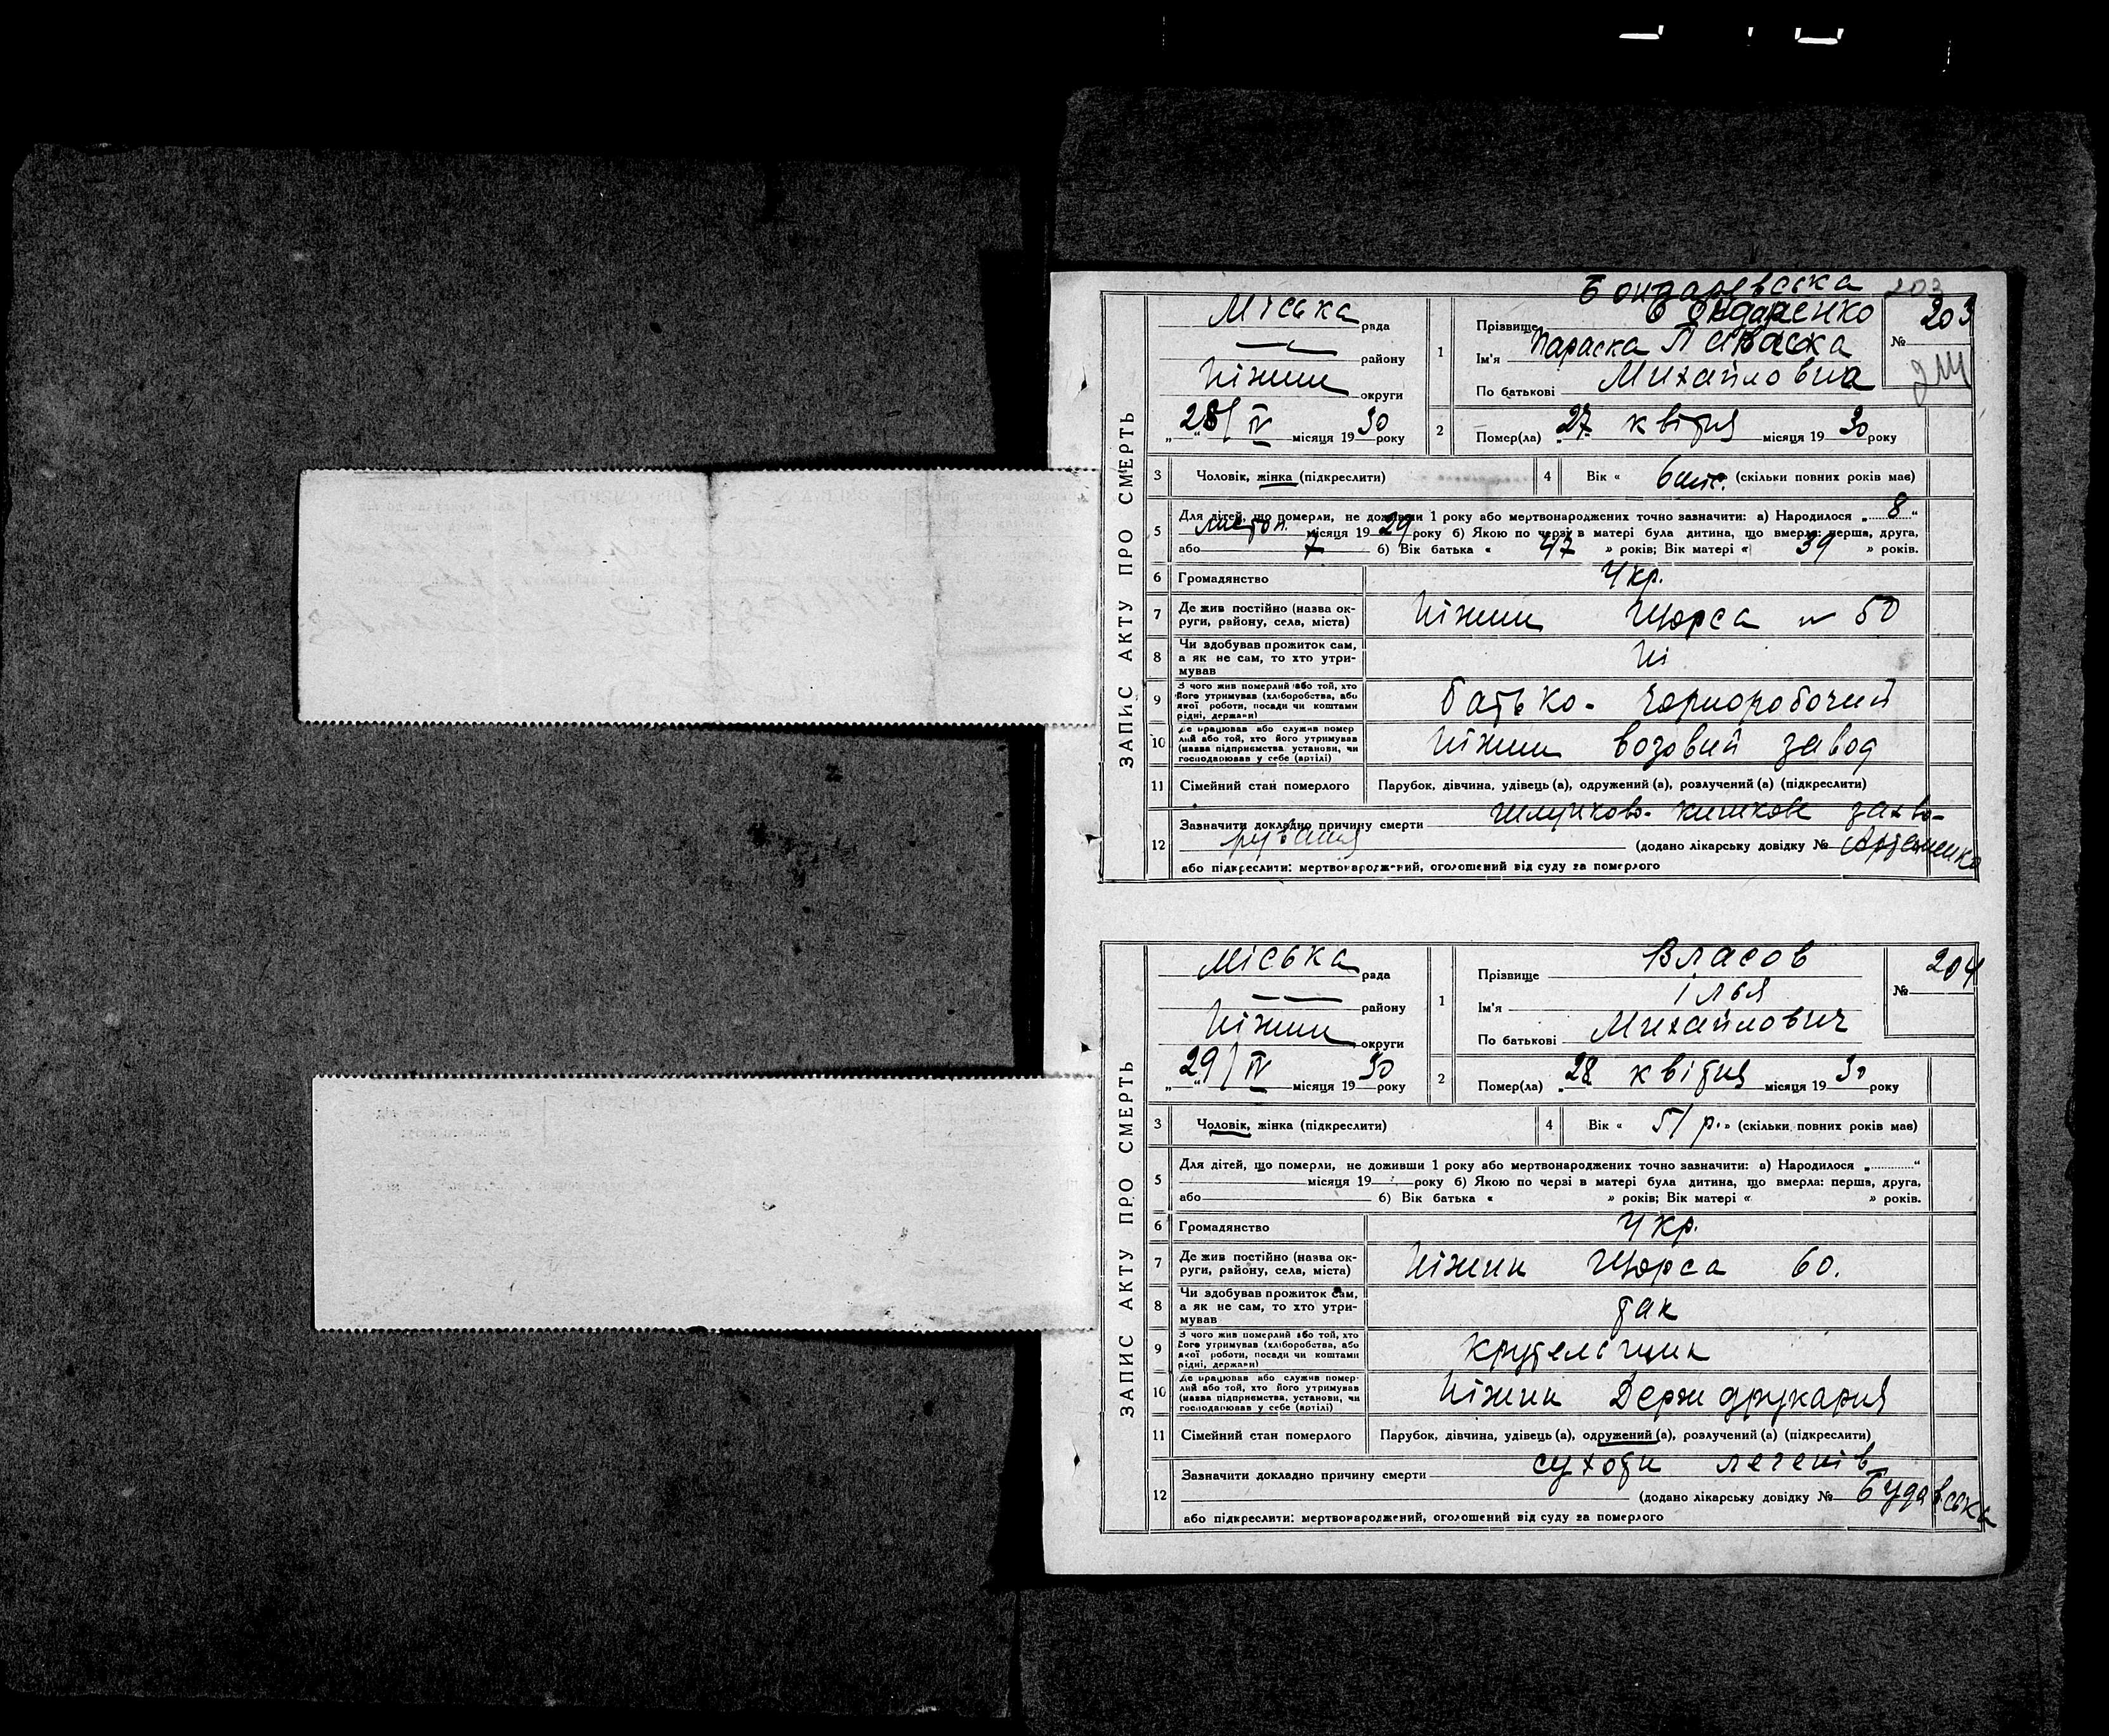 ЗАПИС АКТУ ПРО СМЕРТЬ
Бондаревська
203
Міська рада
Прізвище Бондаренко
№ 203
району
Ім'я Параска
Ніжин округи
По батькові Михайловна
„28/IV місяця 1930 року
2 Помер(ла) 27 квітня місяця 1930 року
3 Чоловік, жінка (підкреслити)
4 Вік « 6 міс. (скільки повних років має)
5 Для дітей, що померли, не доживши 1 року або мертвонароджених точно зазначити: а) Народилося „8“
листоп. місяця 1929 року б) Якою по черзі в матері була дитина, що вмерла: перша, друга,
або 7 б) Вік батька « 47 » років; Вік матері « 39 » років.
6 Громадянство Укр.
7 Де жив постійно (назва округи, району, села, міста) Ніжин Щорса № 50
8 Чи здобував прожиток сам, а як не сам, то хто утримував Ні
9 З чого жив померлий або той, хто його утримував (хліборобства, або якої роботи, посади чи коштами рідні, держави) батько - чорноробочий
10 Де працював або служив померлий або той, хто його утримував (назва підприємства, установи, чи господарював у себе (артілі) Ніжин возовий завод
11 Сімейний стан померлого Парубок, дівчина, удівець (а), одружений (а), розлучений (а) (підкреслити)
Зазначити докладно причину смерти шлунково-кишкове захво-
12 рування (додано лікарську довідку № Артеменко
або підкреслити: мертвонароджений, оголошений від суду за померлого
ЗАПИС АКТУ ПРО СМЕРТЬ
Міська рада
1 Прізвище Власов
№ 204
району
Ім'я Ілья
Ніжин округи
По батькові Михайлович
„29/IV місяця 1930 року
2 Помер(ла) „28 квітня місяця 1930 року
3 Чоловік, жінка (підкреслити)
4 Вік « 51 р. » (скільки повних років має)
5 Для дітей, що померли, не доживши 1 року або мертвонароджених точно зазначити: а) Народилося „ “
місяця 19 року б) Якою по черзі в матері була дитина, що вмерла: перша, друга,
або б) Вік батька « » років; Вік матері « » років.
6 Громадянство Укр.
7 Де жив постійно (назва округи, району, села, міста) Ніжин Щорса 60.
8 Чи здобував прожиток сам, а як не сам, то хто утримував так
9 З чого жив померлий або той, хто його утримував (хліборобства, або якої роботи, посади чи коштами рідні, держави) крутельщик
10 Де працював або служив померлий або той, хто його утримував (назва підприємства, установи, чи господарював у себе (артілі) Ніжин Держдрукарня
11 Сімейний стан померлого Парубок, дівчина, удівець (а), одружений (а), розлучений (а) (підкреслити)
Зазначити докладно причину смерти сухоти легенів
12 (додано лікарську довідку № Будавська
або підкреслити: мертвонароджений, оголошений від суду за померлого